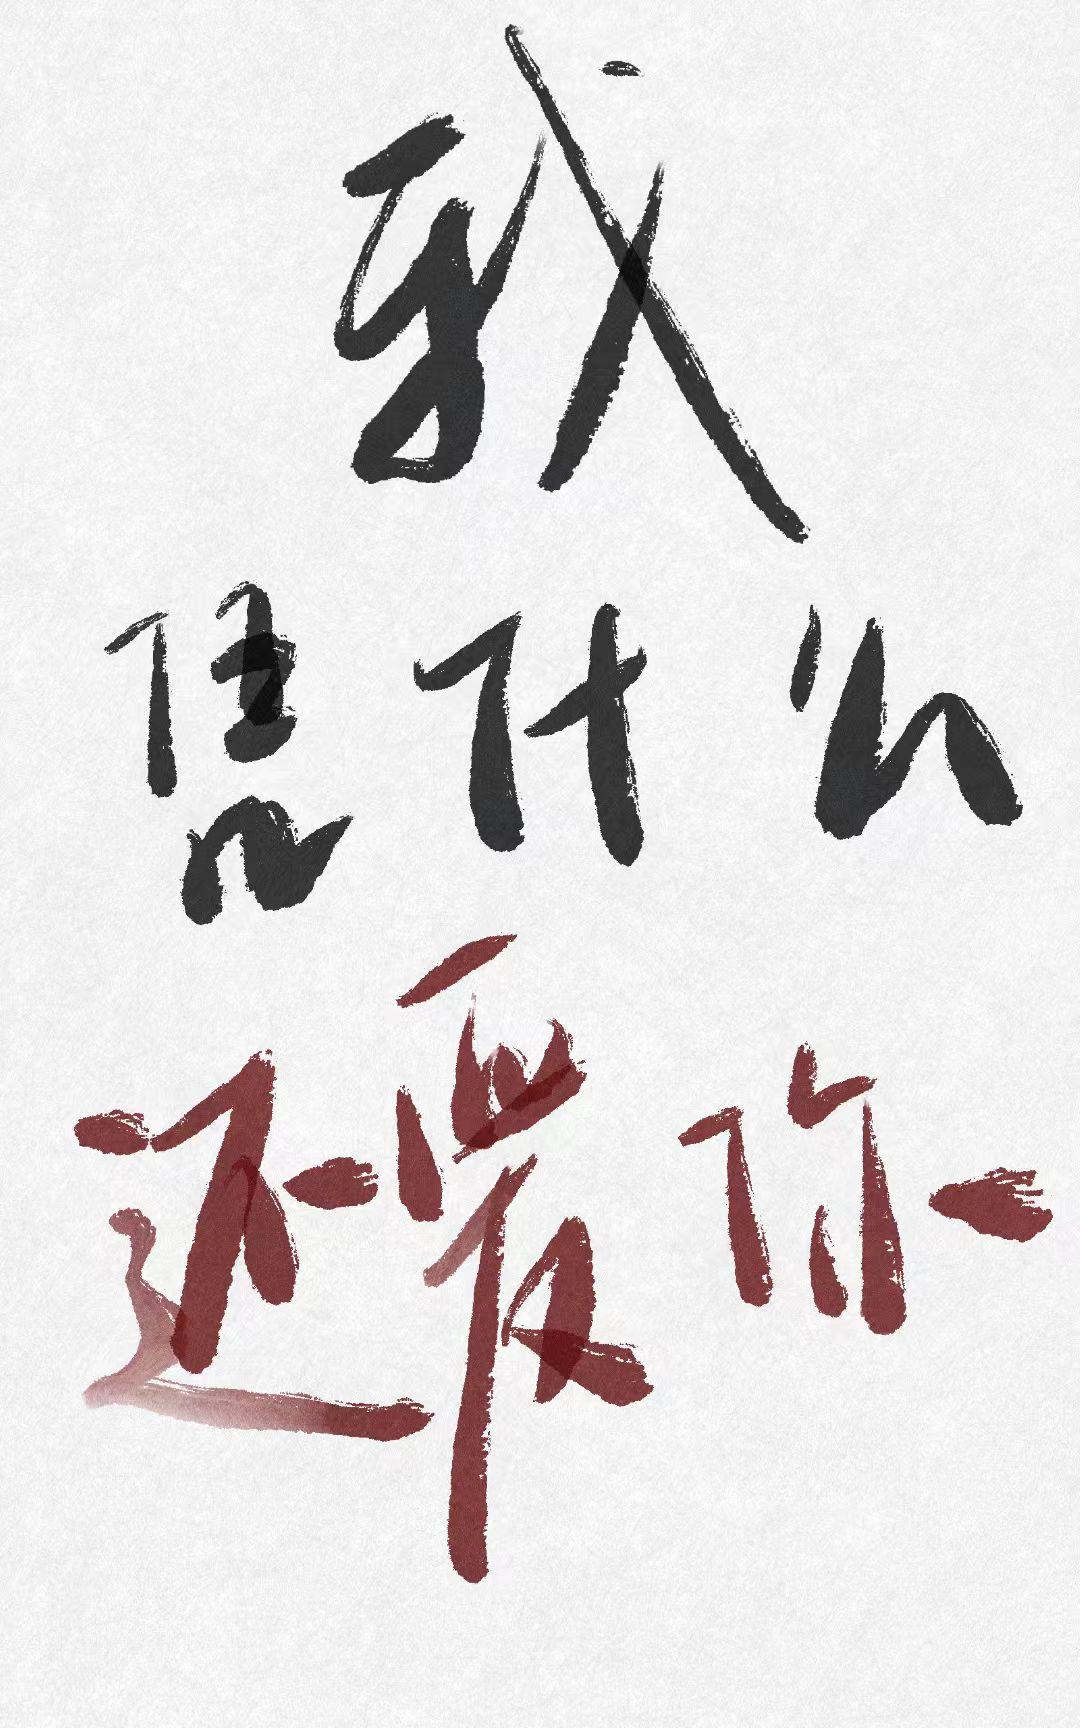 我
凭什么
还爱你